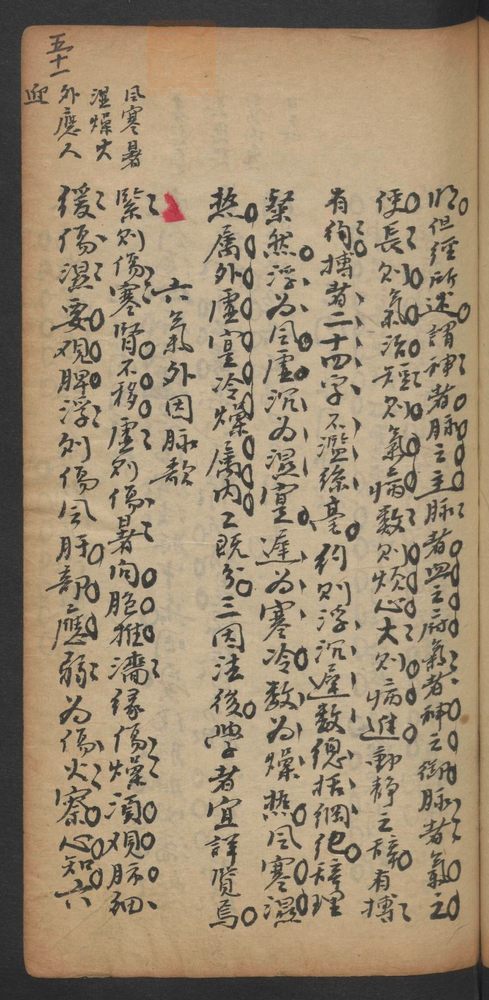 明但經所述謂神者脉之主脉者血之府氣者神之御脉者氣之
使長則氣治短則氣病數則煩心大則病進動靜之辭有博
有約博者二十四字不濫絲毫約則浮沉遲數總括綱紀辞理
粲然浮為風虛沉為濕實遲為寒冷數為燥熱風寒濕
熱属外虛實冷燥属内之既分三因法後學者宜詳覧焉
六氣外因脉歌
緊則傷寒腎不移虛則傷暑向胞推濇縁傷燥須观肺細
缓傷濕要观脾浮則傷風肝部應弱為傷火察心知六
風寒暑
濕燥火
外應人
迎
五十一